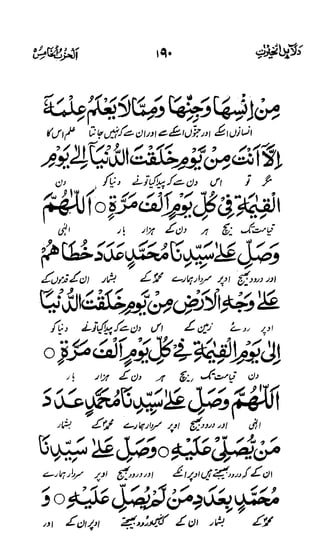 دلائل الخیرات ۱۹۰ الحزب الخامس
مِنْ اِنْسِهَا وَجِنِّهَا وَمِمَّا لَا يَعْلَمُ عِلْمَهٗ
انسانوں اسکے اور جنوں اسکے سے اور ان سے کہ نہیں جانتا علم اس کا
اِلَّا اَنْتَ مِنْ يَّوْمِ خَلَقْتَ الدُّنْيَا اِلٰى يَوْمِ
مگر تو اس دن سے کہ پیدا کیا تونے دنیا کو دن
الْقِيٰمَةِ فِيْ كُلِّ يَوْمٍ اَلْفَ مَرَّةٍ ○ اَللّٰهُمَّ
قیامت تک بیچ ہر دن کے ہزار بار الٰہی
وَصَلِّ عَلٰى سَيِّدِنَا مُحَمَّدٍ عَدَدَ خُطَاهُمْ
اور درود بھیج اوپر سردار ہمارے محمد کے بشمار ان کے قدموں کے
عَلٰى وَجْهِ الْاَرْضِ مِنْ يَّوْمِ خَلَقْتَ الدُّنْيَا
اوپر روئے زمین کے اس دن سے کہ پیدا کیا تونے دنیا کو
اِلٰى يَوْمِ الْقِيٰمَةِ فِيْ كُلِّ يَوْمٍ اَلْفَ مَرَّةٍ ○
دن قیامت تک بیچ ہر دن کے ہزار بار
اَللّٰهُمَّ وَصَلِّ عَلٰى سَيِّدِنَا مُحَمَّدٍ عَدَدَ
الٰہی اور درود بھیج اوپر سردار ہمارے محمد کے بشمار
مَنْ يُّصَلِّيْ عَلَيْهِ ○ وَصَلِّ عَلٰى سَيِّدِنَا
ان کے کہ درود بھیجتے ہیں اوپر انکے اور درود بھیج اوپر سردار ہمارے
مُحَمَّدٍ بِعَدَدِ مَنْ لَّمْ يُصَلِّ عَلَيْهِ ○ وَ
محمد کے بشمار ان کے کہ نہیں درود بھیجتے اوپر ان کے اور